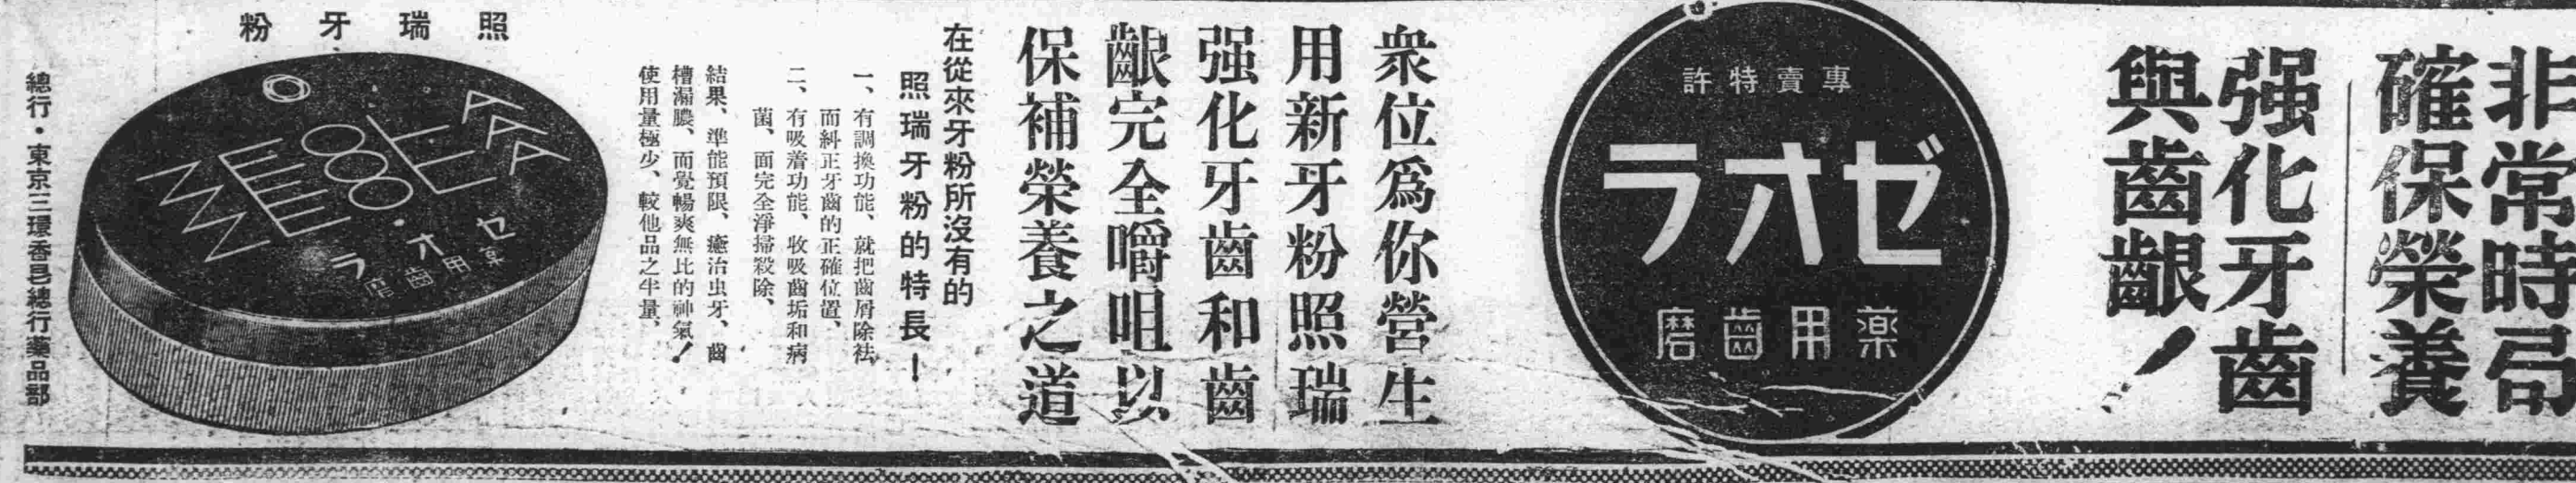 非常時局
確保榮養
强化牙齒
與齒齦！
專賣特許
ゼオラ
薬用齒磨
衆位爲你營生
用新牙粉照瑞
强化牙齒和齒
齦完全嚼咀以
保補榮養之道
在從來牙粉所沒有的
照瑞牙粉的特長！
一、有調換功能、就把齒屑除袪
而糾正牙齒的正確位置、
二、有吸着功能、收吸齒垢和病
菌、面完全淨掃殺除、
結果、準能預限、癒治虫牙、齒
槽漏膿、而覺暢爽無比的神氣！
使用量極少、較他品之半量、
照瑞牙粉
ゼオラ
薬用齒磨
總行・東京三環香皂總行薬品部